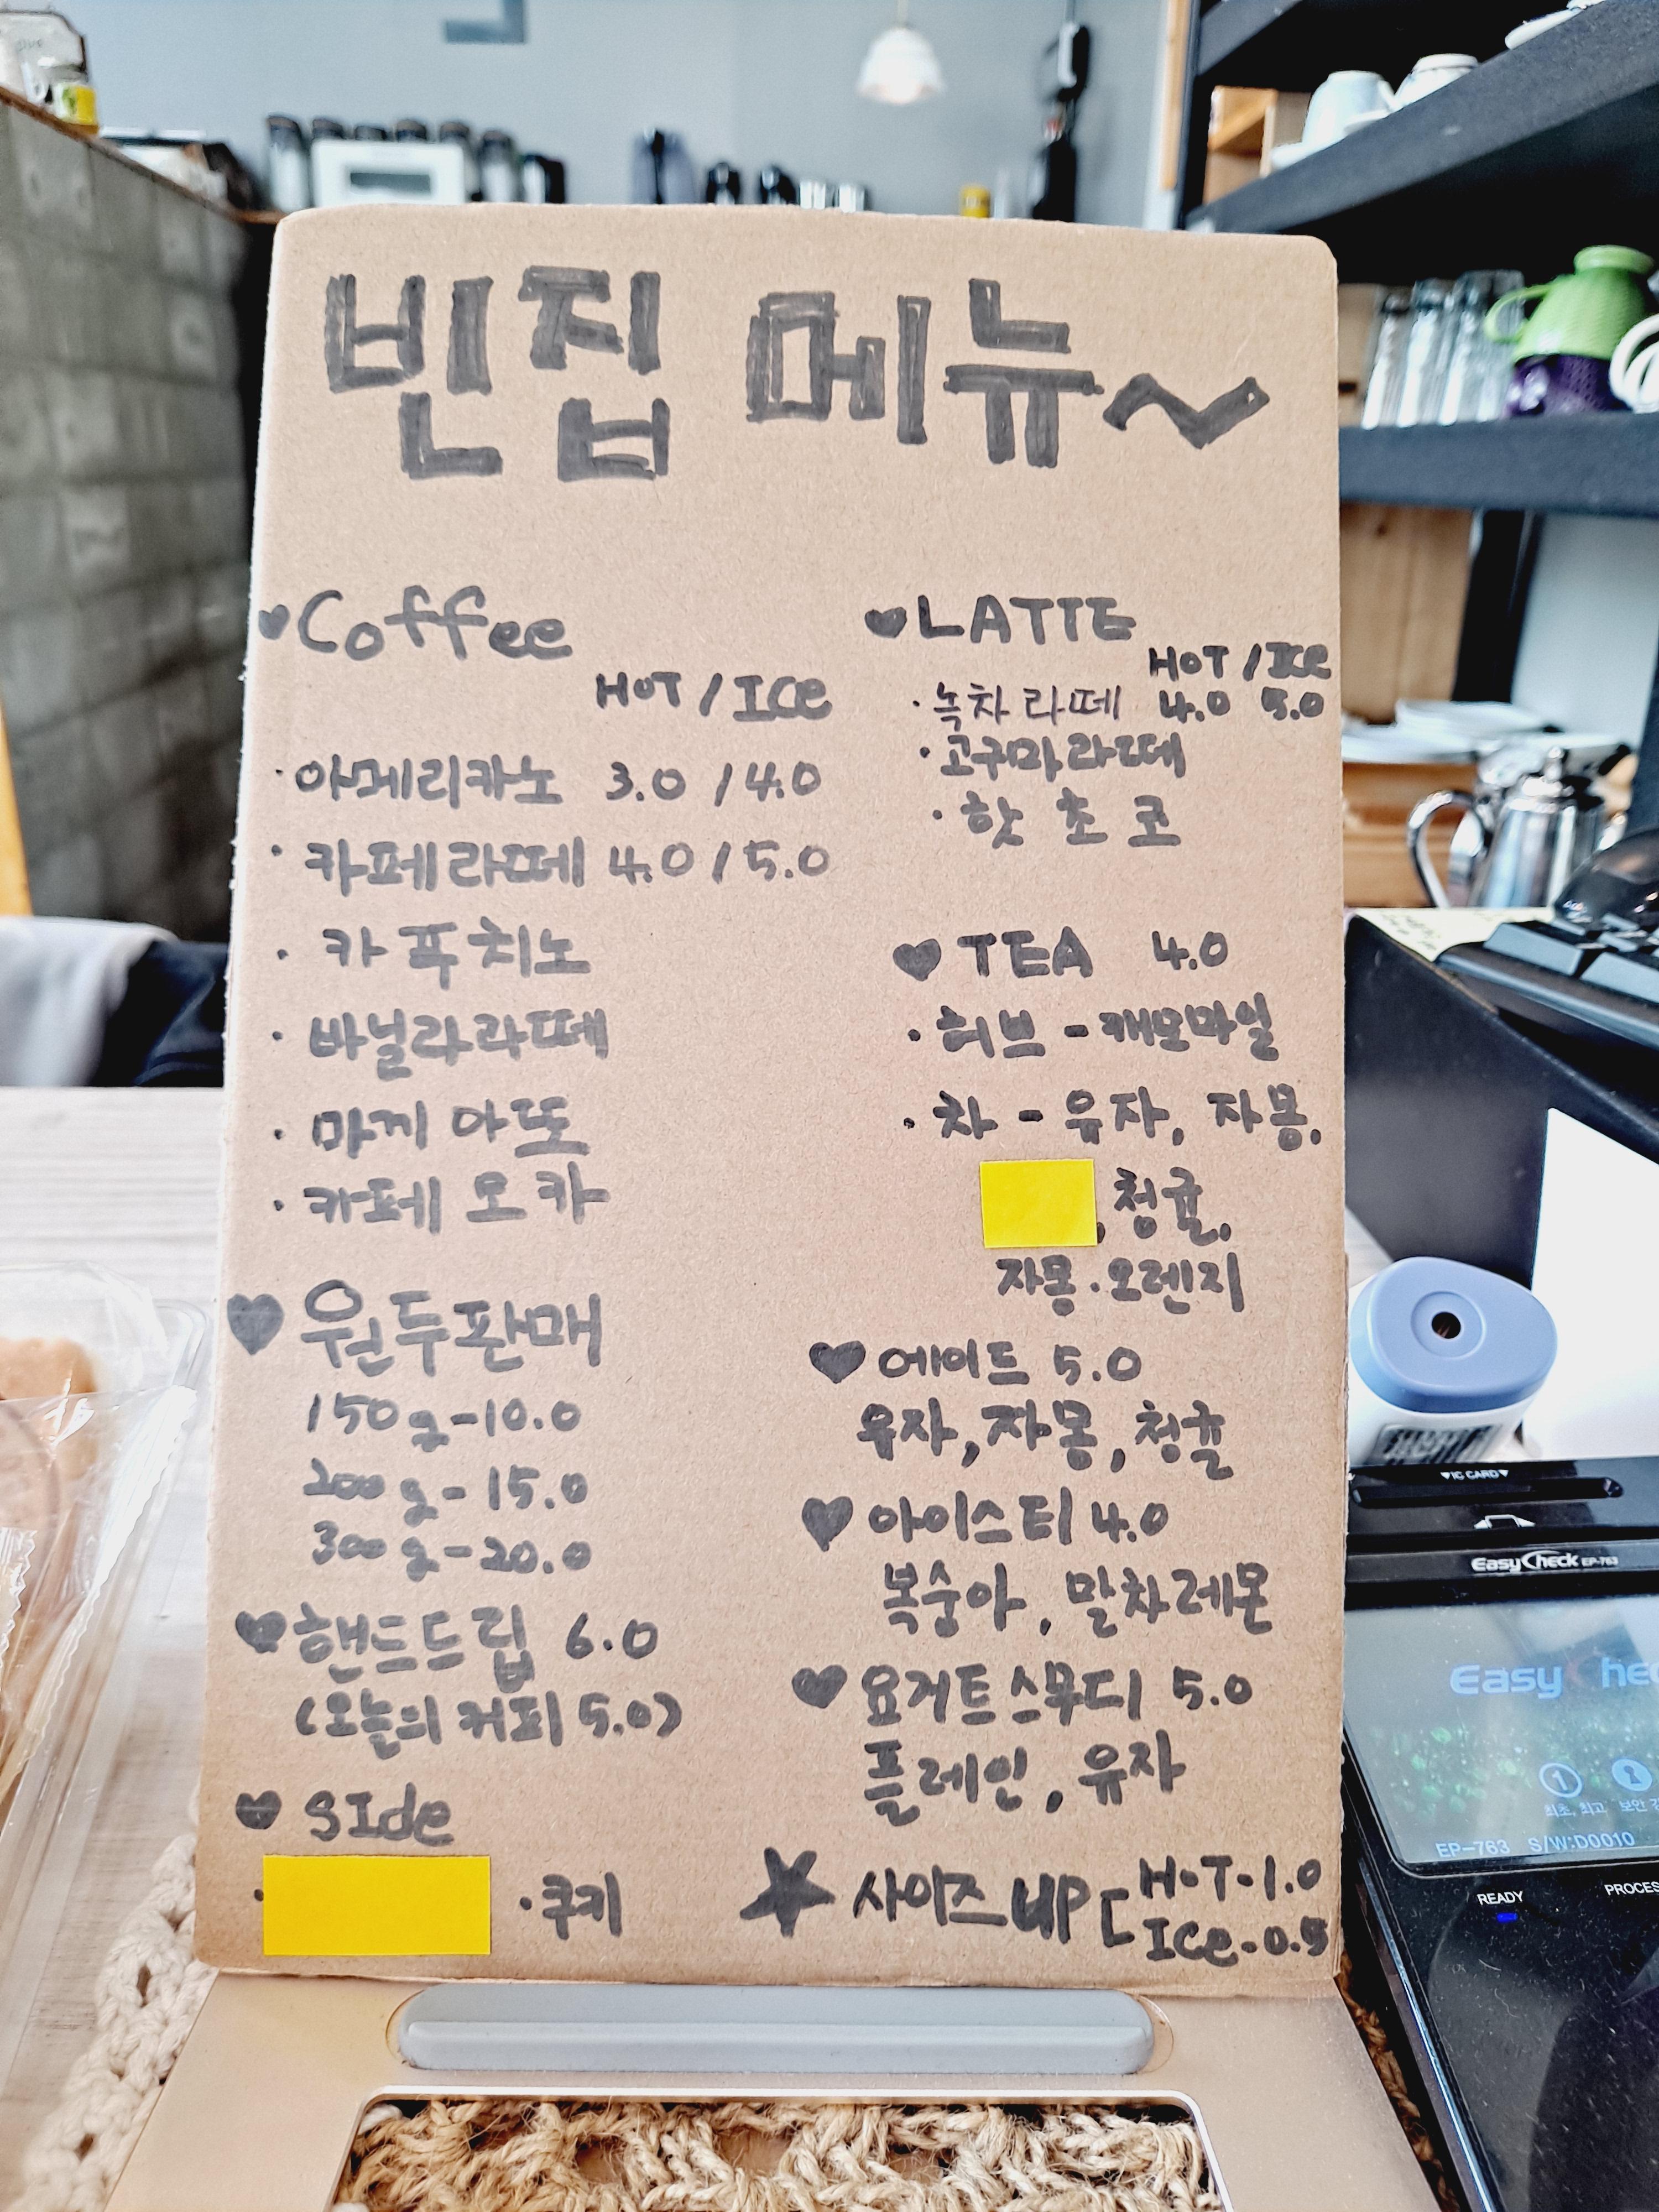 빈집 메뉴~
♥Coffee
HOT / ICe
·아메리카노 3.0 / 4.0
·카페라떼 4.0 / 5.0
·카푸치노
·바닐라라떼
·마끼아또
·카페모카
♥원두판매
150g-10.0
200g-15.0
300g-20.0
♥핸드드립 6.0
(오늘의 커피 5.0)
♥SIde
·쿠키
♥LATTE
HOT / ICe
·녹차라떼 4.0 5.0
·고구마라떼
·핫초코
♥TEA 4.0
·허브-캐모마일
·차-유자, 자몽,
,청귤,
자몽·오렌지
♥에이드 5.0
유자, 자몽, 청귤
♥아이스티 4.0
복숭아, 말차레몬
♥요거트스무디 5.0
플레인, 유자
★ 사이즈UP [ HOT-1.0
ICe-0.5
▼IC CARD▼
EasyCheck EP-763
Easy Chec
최초, 최고 보안
EP-763 S/W:D0010
READY PROCES